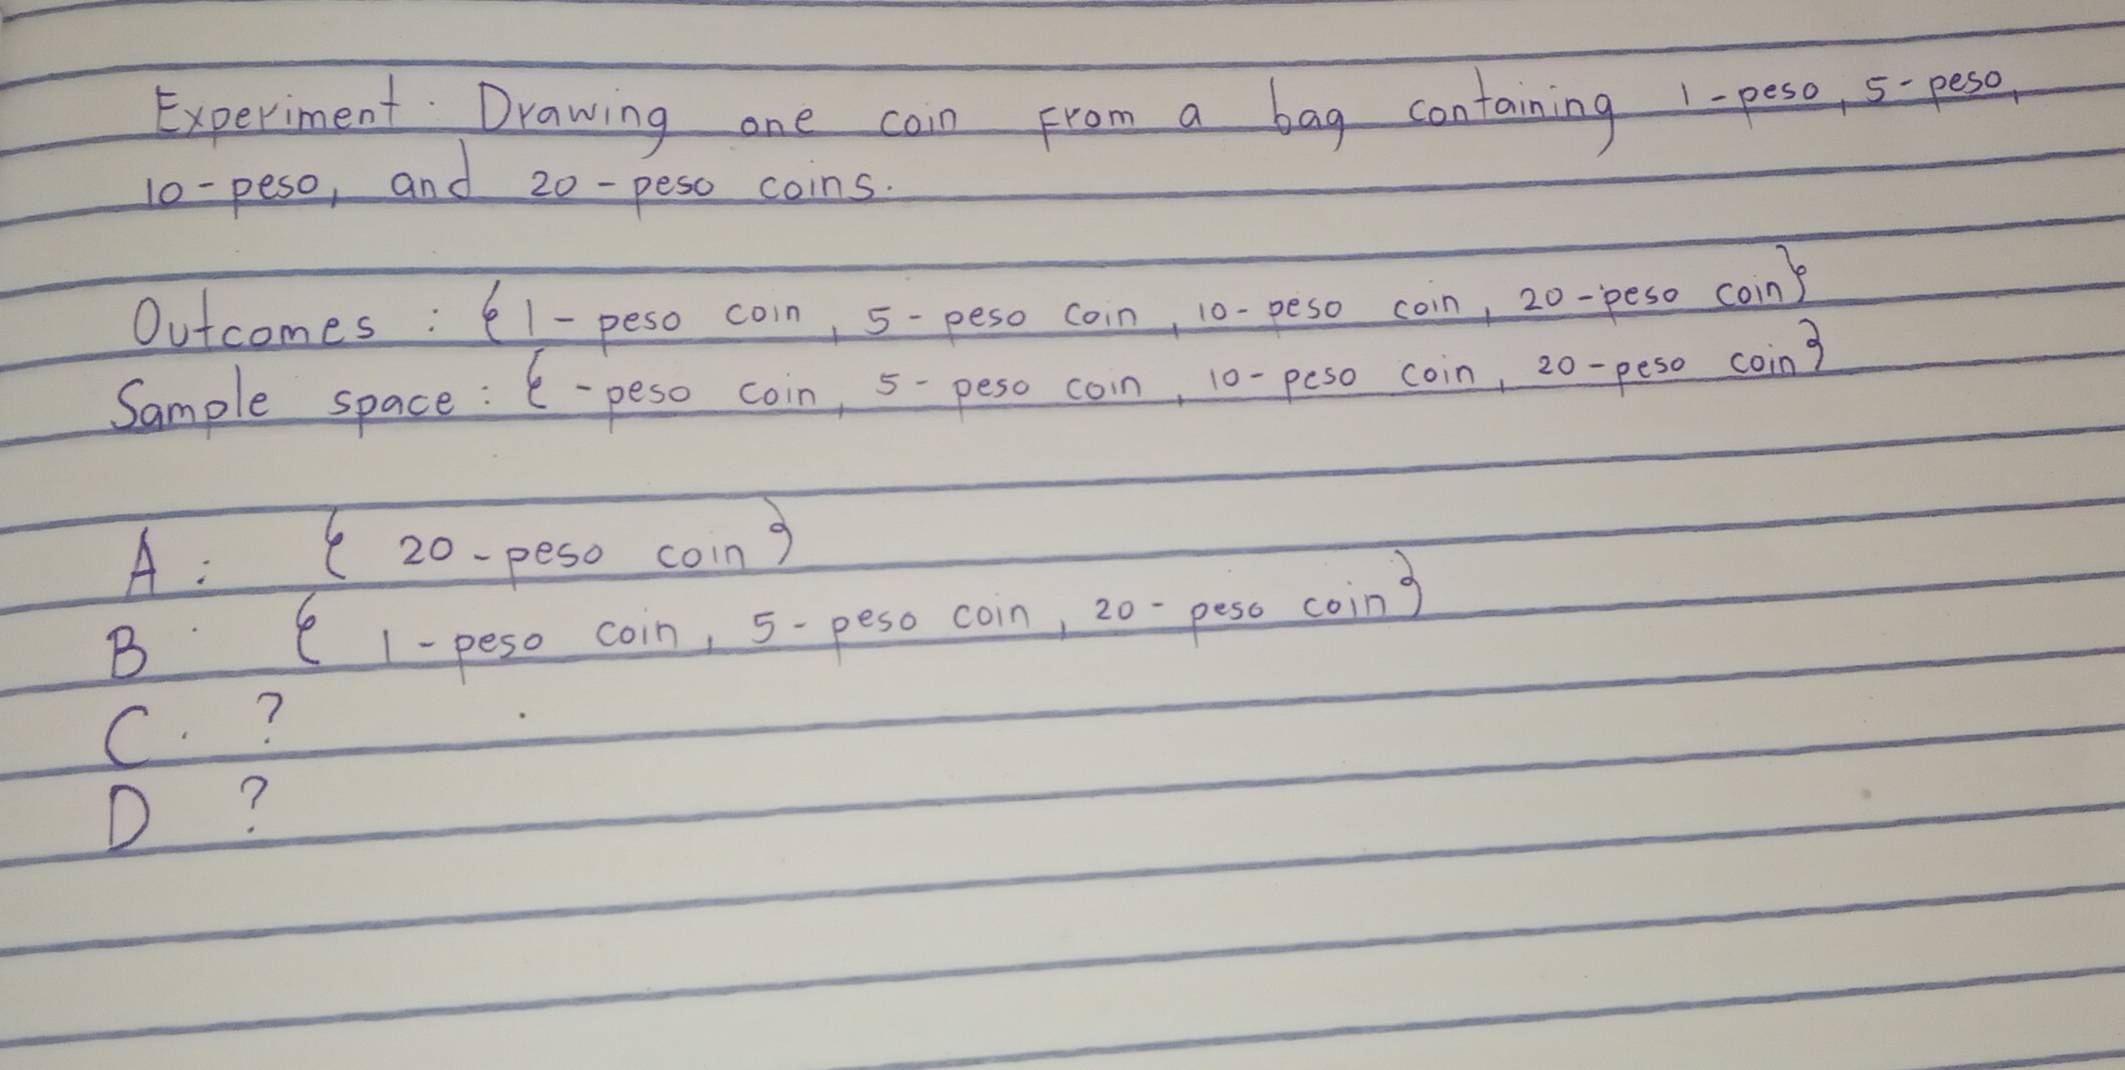 Experiment: Drawing one coin from a bag containing 1-peso, 5-peso,
10-peso, and 20-peso coins.
Outcomes : {1-peso coin, 5-peso coin, 10-peso coin, 20-peso coin}
Sample space: {-peso coin, 5-peso coin, 10-peso coin, 20-peso coin}
A: { 20-peso coin}
B: { 1-peso coin, 5-peso coin, 20-peso coin}
C. ?
D ?